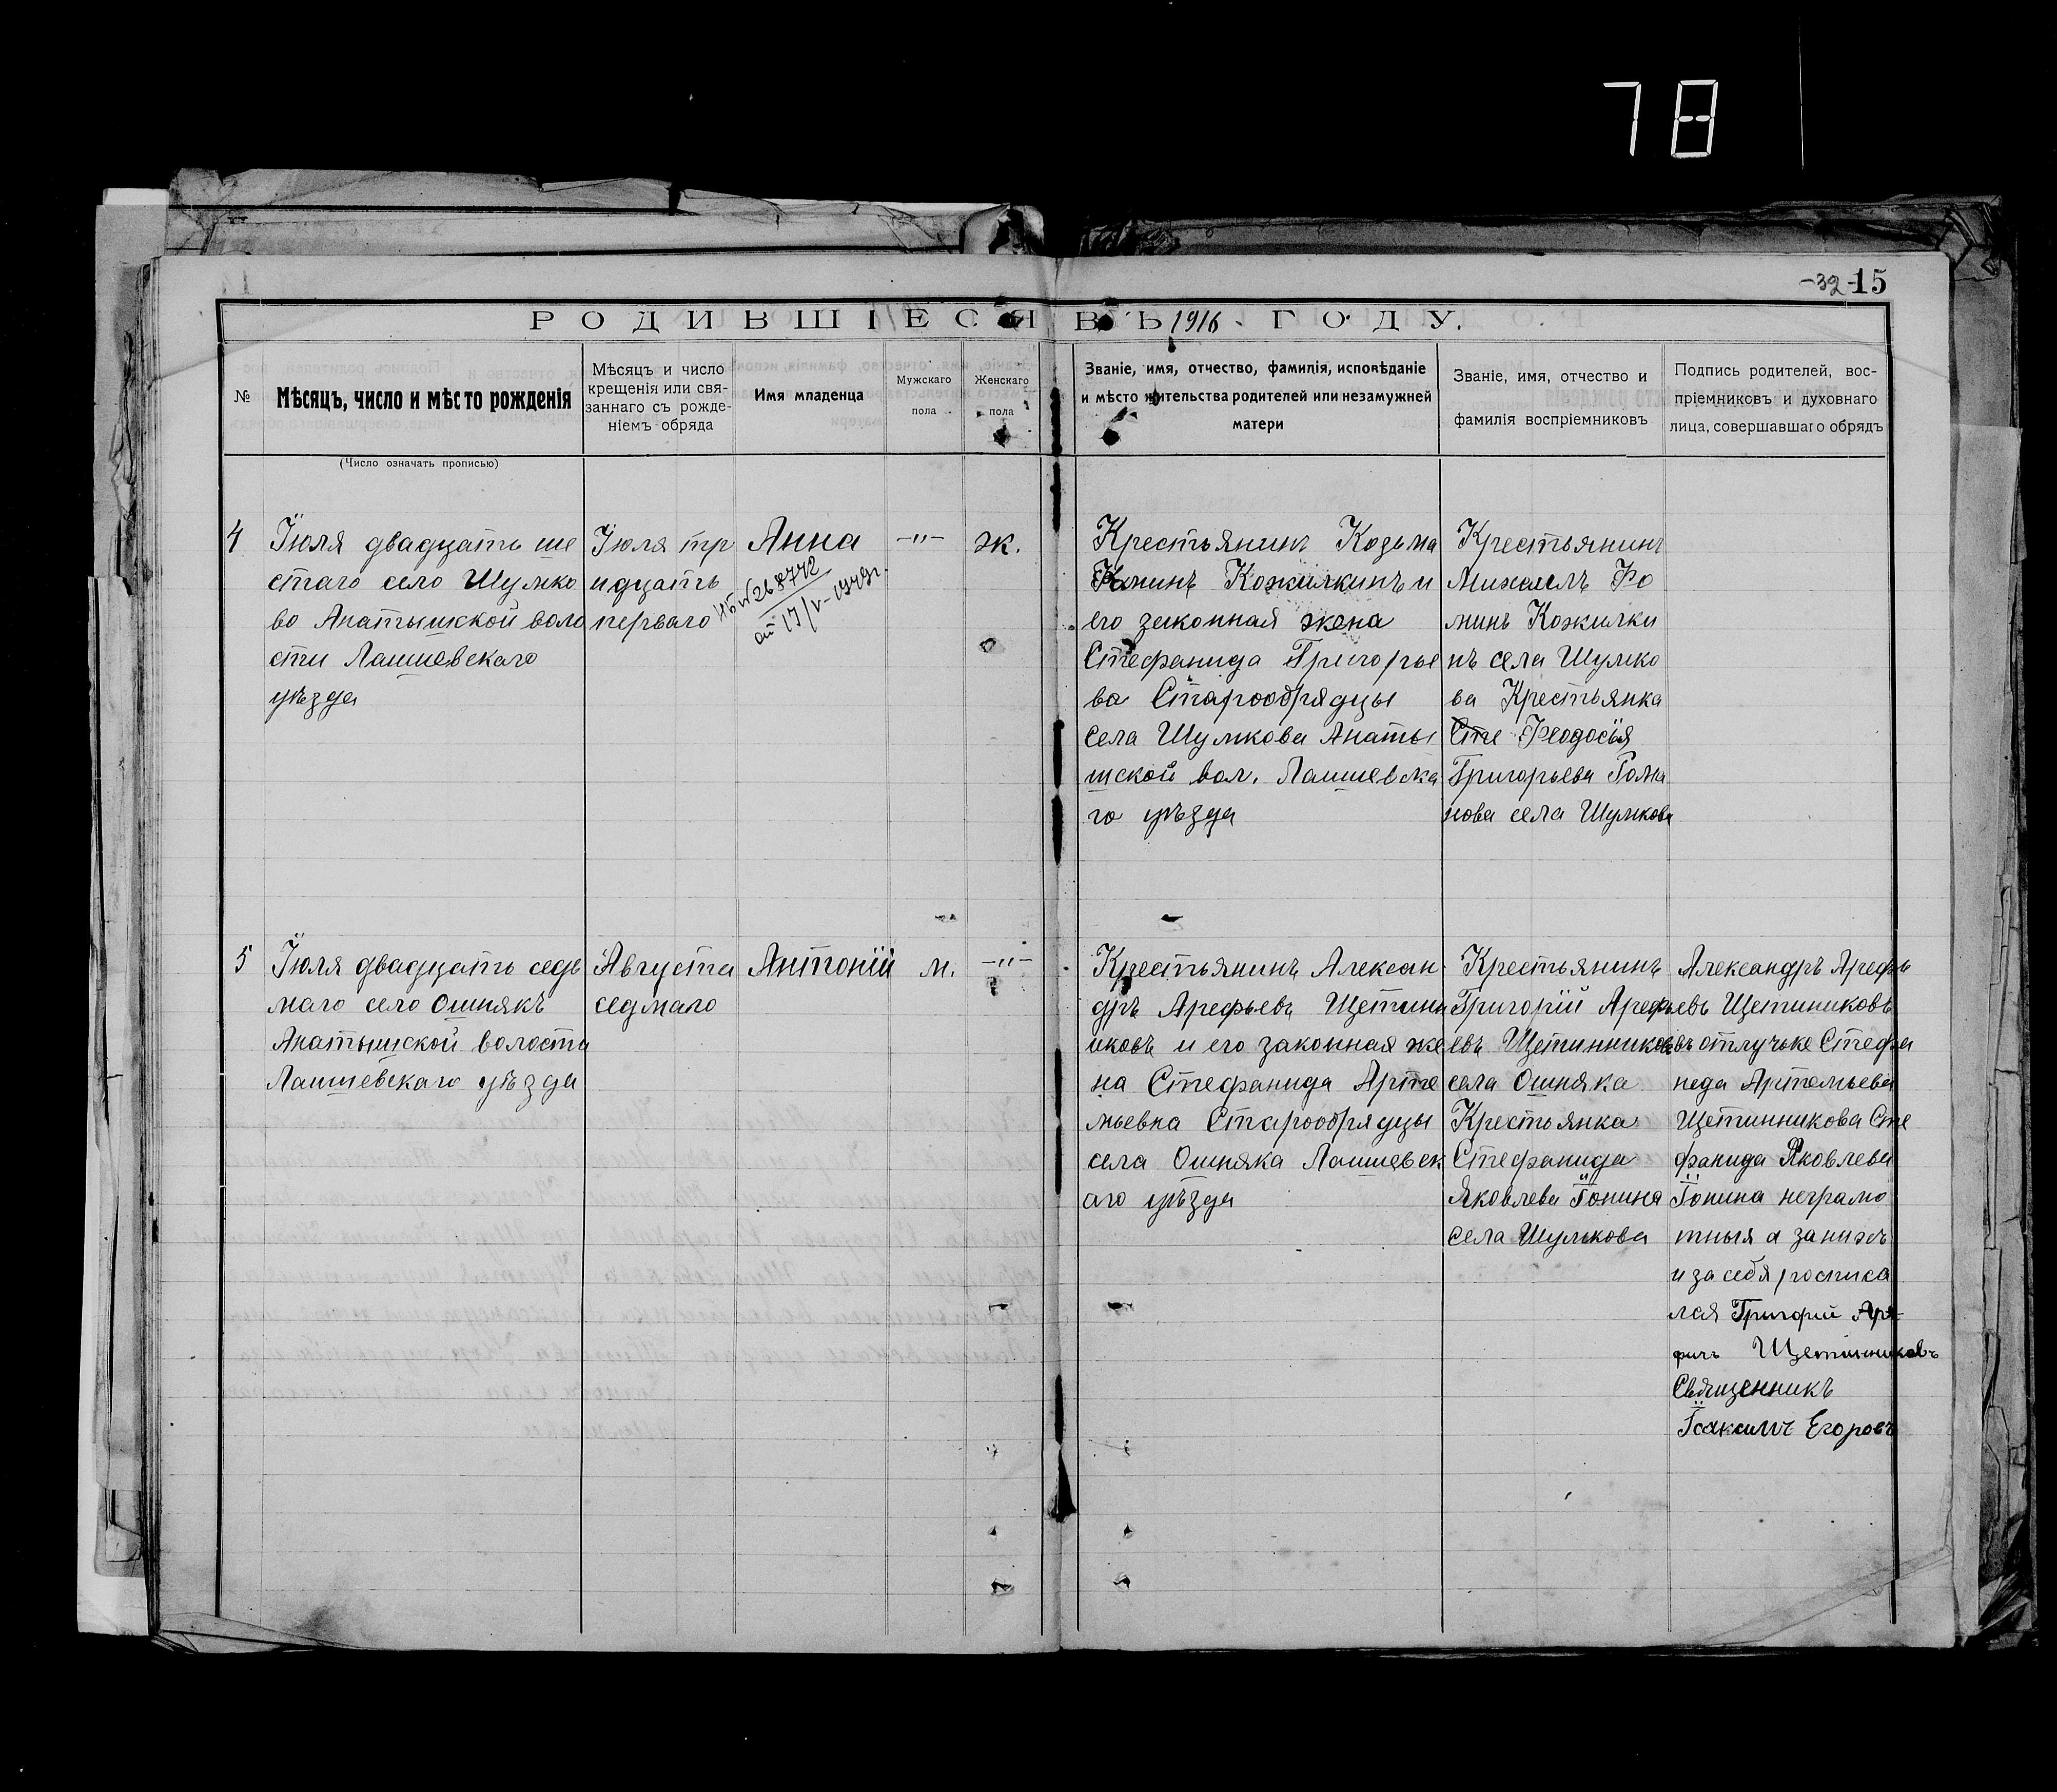 78
-32- 15
РОДИВШІЕСЯ ВЪ 1916 ГОДУ.
№
Мѣсяцъ, число и мѣсто рожденія
(Число означать прописью)
Мѣсяцъ и число
крещенія или свя-
заннаго съ рожде-
ніемъ обряда
Имя младенца
Мужскаго
пола
Женскаго
пола
Званіе, имя, отчество, фамилія, исповѣданіе
и мѣсто жительства родителей или незамужней
матери
Званіе, имя, отчество и
фамилія воспріемниковъ
Подпись родителей, вос-
пріемниковъ и духовнаго
лица, совершавшаго обрядъ
4
Іюля двадцать ше
стаго село Шумко
во Анатышской воло
сти Лаишевскаго
уѣзда
Іюля тр
идцать
перваго
Анна
№ 268772
от 17/V-
-"-
ж.
Крестьянинъ Козьма
Фоминъ Кожилкинъ и
его законная жена
Стефанида Григорье
ва Старообрядцы
села Шумкова Анаты
шской вол. Лаишевска
го уѣзда
Крестьянинъ
Михаилъ Фо
минъ Кожилки
нъ села Шумко
ва Крестьянка
Сте Феодосія
Григорьева Рома
нова села Шумкова
5
Іюля двадцать седь
маго село Ошнякъ
Анатышской волости
Лаишевскаго уѣзда
Августа
седмаго
Антоній
м.
-"-
Крестьянинъ Алексан
дръ Арефьевъ Щетини
иковъ и его законная же
на Стефанида Арте
мьевна Старообрядцы
села Ошняка Лаишевск
аго уѣзда
Крестьянинъ
Григорій Арефь
евъ Щетинниковъ
села Ошняка
Крестьянка
Стефанида
Яковлева Іонина
села Шумкова
Александръ Арефь
евъ Щетиниковъ
въ отлучьке Стефа
неда Артемьева
Щетинникова Сте
фанида Яковлева
Іонина неграмо
тныя а занихъ
и за себя росписа
лся Григорій Аре-
Щетинниковъ
Священникъ
Іоакимъ Егоровъ